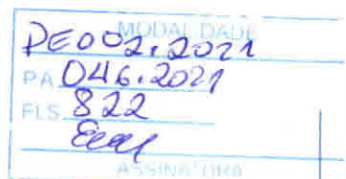 MODALIDADE
PE002.2021
PA 046.2021
FLS 822
ASSINATURA